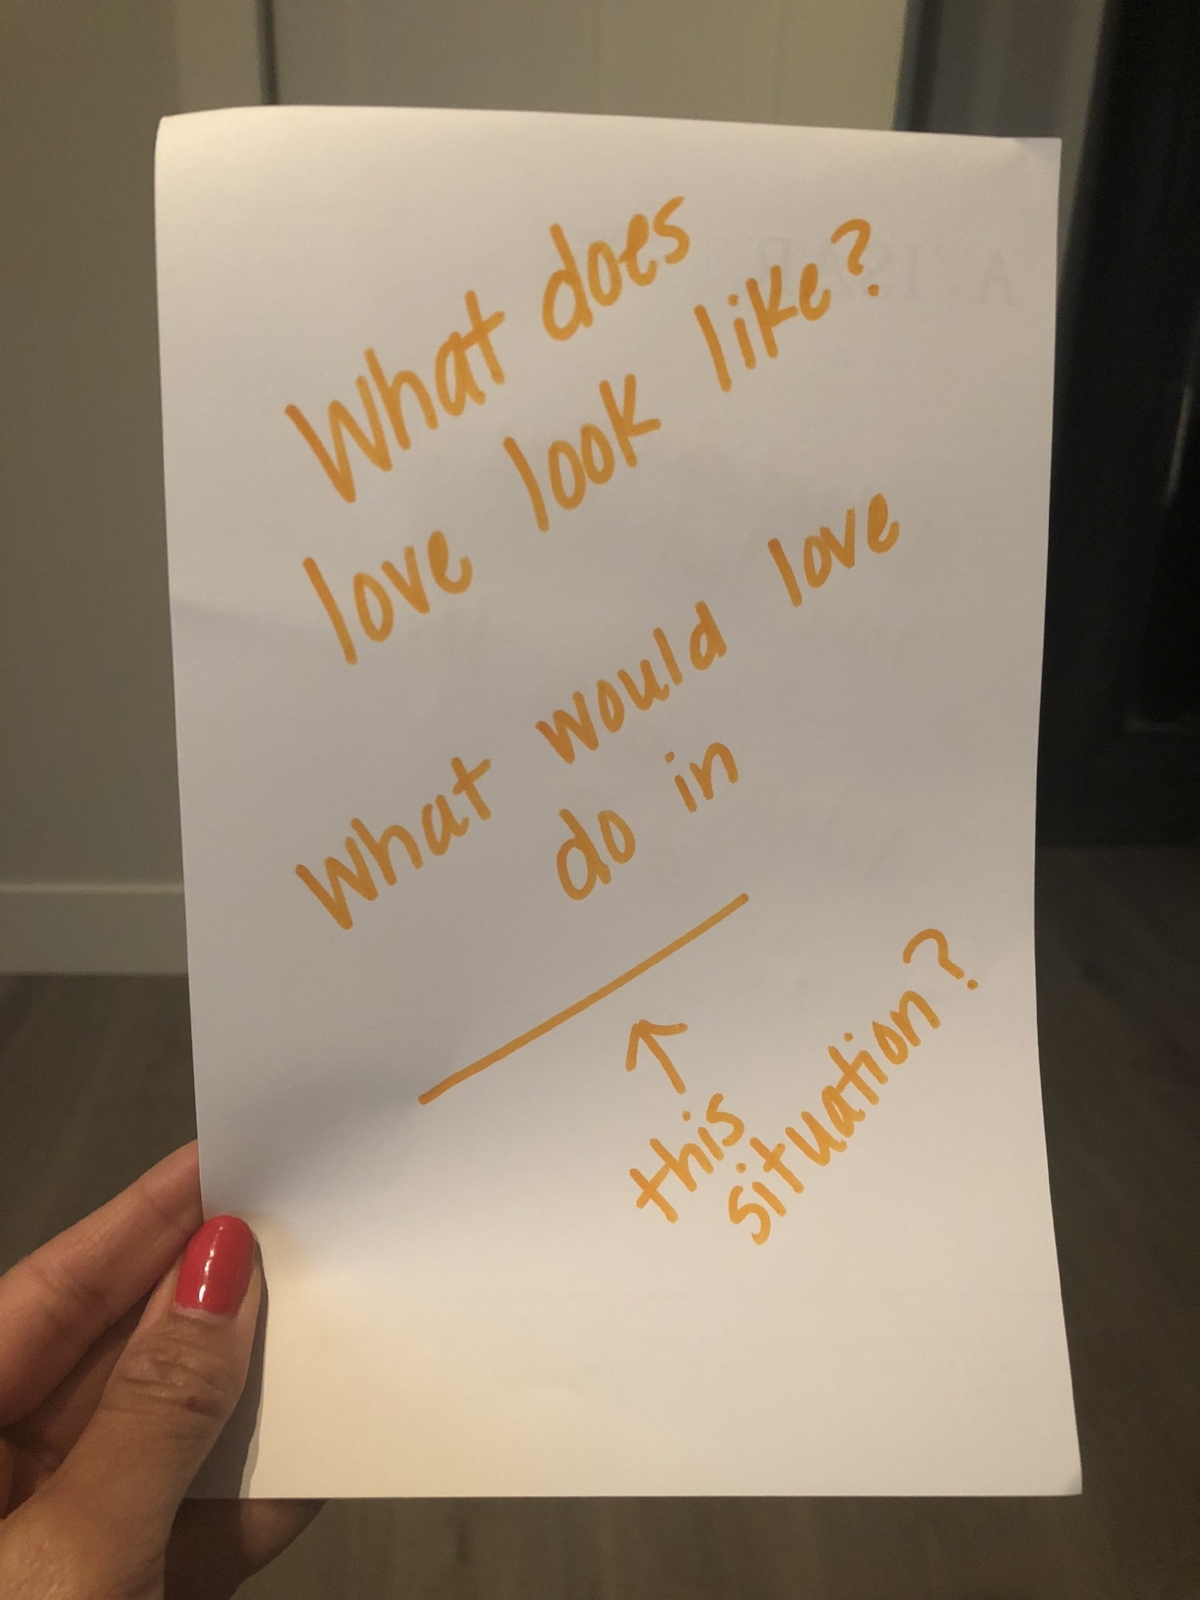 What does
love look like?
What would love
do in
this
situation?